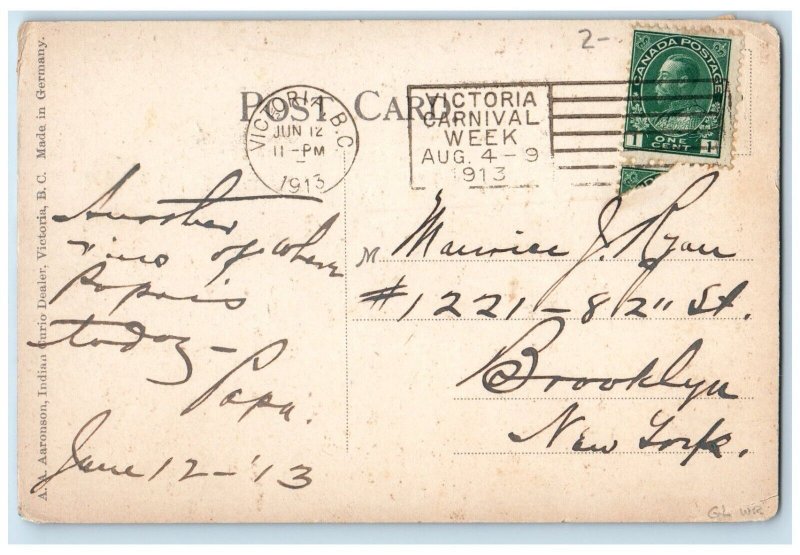 2-
POST CARD
CANADA POSTAGE
1 1
ONE CENT
VICTORIA, B.C.
JUN 12
11-PM
1913
VICTORIA
CARNIVAL
WEEK
AUG. 4-9
1913
A. A. Aaronson, Indian Curio Dealer, Victoria, B. C. Made in Germany.
Another
view of where
Papa is
today -
Papa.
June 12 - '13
M Maurice J. Ryan
#1221 - 82" St.
Brooklyn
New York.
GL WR